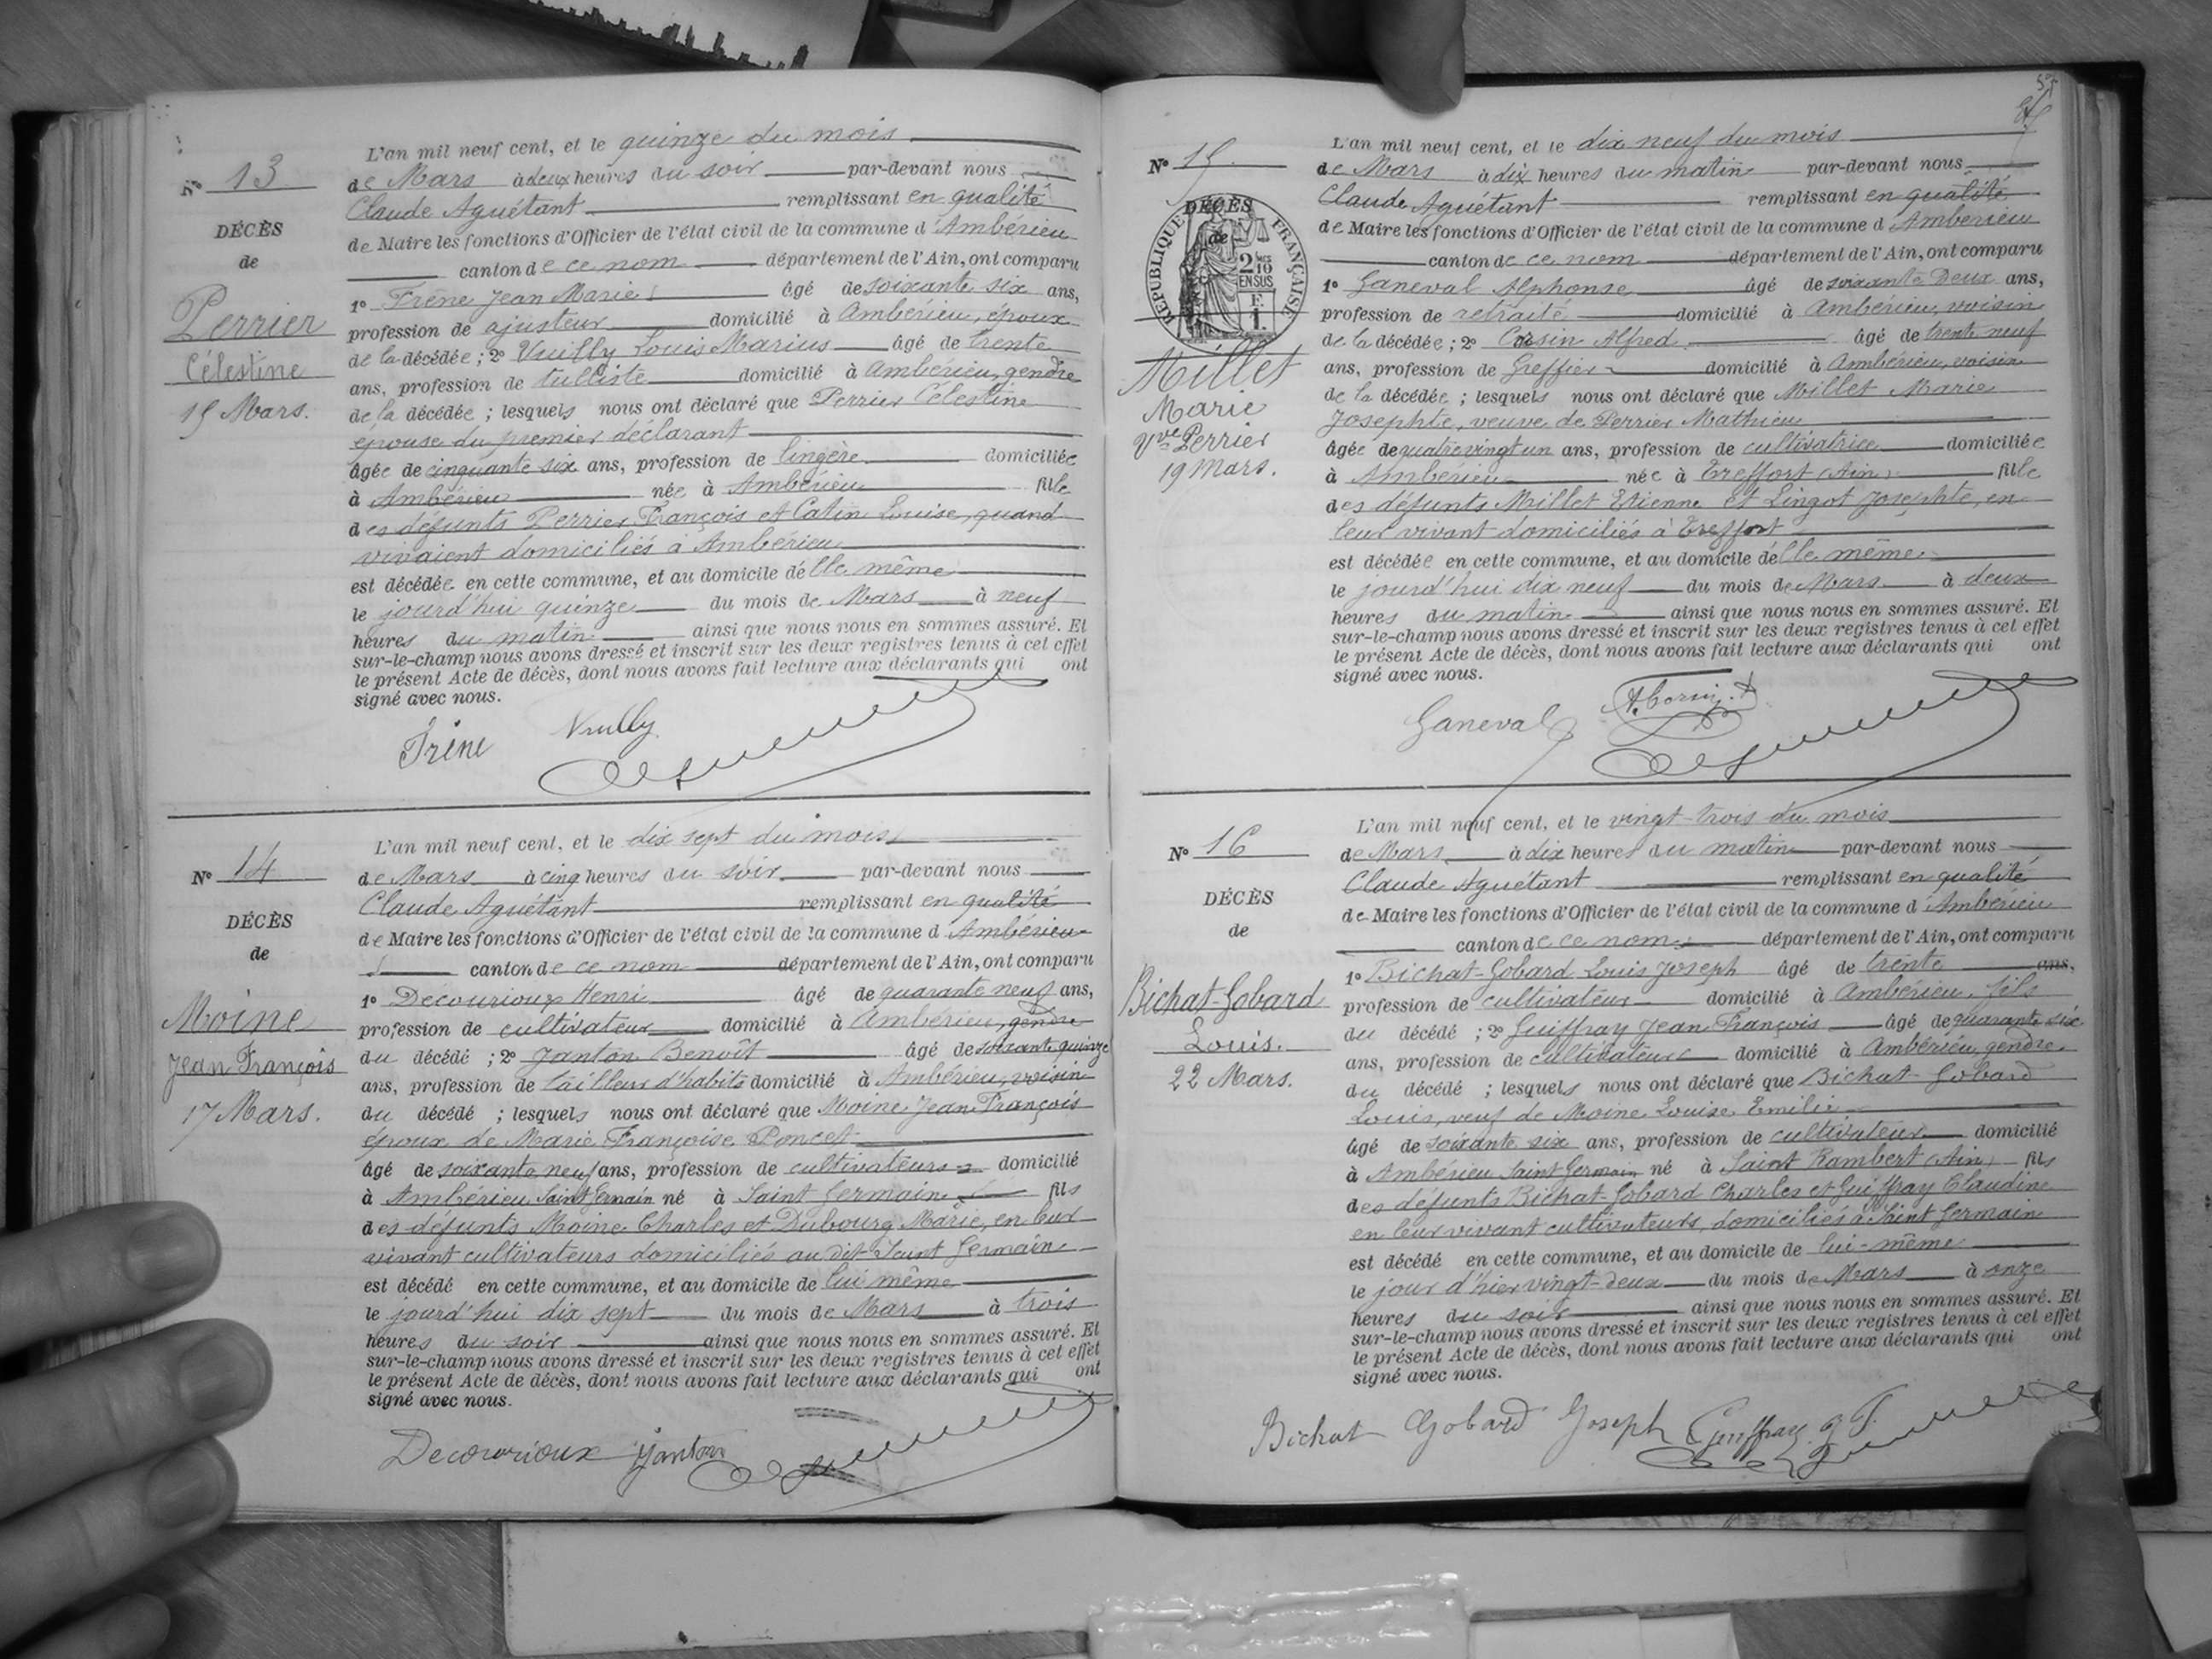 L'an mil neuf cent, et le quinze du mois
N° 13
de Mars à deux heures du soir par-devant nous
Claude Aguétant remplissant en qualité
DÉCÈS
de Maire les fonctions d'Officier de l'état civil de la commune d'Ambérieu
de
canton de ce nom département de l'Ain, ont comparu
1° Frène Jean Marie âgé de soixante six ans,
Perrier
profession de ajusteur domicilié à Ambérieu, époux
de la décédée ; 2° Vuilly Louis Marius âgé de trente
Célestine
ans, profession de tulliste domicilié à Ambérieu, gendre
15 Mars.
de la décédée ; lesquels nous ont déclaré que Perrier Célestine
épouse du premier déclarant
âgée de cinquante six ans, profession de lingère domiciliée
à Ambérieu née à Ambérieu fille
des défunts Perrier François et Catin Louise, quand
vivaient domiciliés à Ambérieu
est décédée en cette commune, et au domicile d'elle même
le jourd'hui quinze du mois de Mars à neuf
heures du matin ainsi que nous nous en sommes assuré. Et
sur-le-champ nous avons dressé et inscrit sur les deux registres tenus à cet effet
le présent Acte de décès, dont nous avons fait lecture aux déclarants qui ont
signé avec nous.
Frène Vuilly
L'an mil neuf cent, et le dix sept du mois
N° 14
de Mars à cinq heures du soir par-devant nous
Claude Aguétant remplissant en qualité
DÉCÈS
de Maire les fonctions d'Officier de l'état civil de la commune d'Ambérieu
de
canton de ce nom département de l'Ain, ont comparu
1° Décourioux Henri âgé de quarante neuf ans,
Moine
profession de cultivateur domicilié à Ambérieu, gendre
du décédé ; 2° Janton Benoît âgé de soixante quinze
Jean François
ans, profession de tailleur d'habits domicilié à Ambérieu, voisin
17 Mars.
du décédé ; lesquels nous ont déclaré que Moine Jean François
époux de Marie Françoise Poncet
âgé de soixante neuf ans, profession de cultivateurs domicilié
à Ambérieu Saint Germain né à Saint Germain fils
des défunts Moine Charles et Dubourg Marie, en leur
vivant cultivateurs domiciliés au dit Saint Germain
est décédé en cette commune, et au domicile de lui même
le jourd'hui dix sept du mois de Mars à trois
heures du soir ainsi que nous nous en sommes assuré. Et
sur-le-champ nous avons dressé et inscrit sur les deux registres tenus à cet effet
le présent Acte de décès, dont nous avons fait lecture aux déclarants qui ont
signé avec nous.
Decourioux Janton
L'an mil neuf cent, et le dix neuf du mois
N° 15
de Mars à dix heures du matin par-devant nous
Claude Aguétant remplissant en qualité
DÉCÈS
RÉPUBLIQUE FRANÇAISE
de
2/10 EN SUS
de Maire les fonctions d'Officier de l'état civil de la commune d'Ambérieu
canton de ce nom département de l'Ain, ont comparu
1° Ganeval Alphonse âgé de soixante Deux ans,
profession de retraité domicilié à Ambérieu, voisin
de la décédée ; 2° Alfred âgé de trente neuf
Millet
ans, profession de Greffier domicilié à Ambérieu, voisin
de la décédée ; lesquels nous ont déclaré que Millet Marie
Marie
Josephte, veuve de Perrier Mathieu
Vve Perrier
âgée de quatre vingt un ans, profession de cultivatrice domiciliée
19 Mars.
à Ambérieu née à Treffort (Ain) fille
des défunts Millet Etienne et Lingot Josephte, en
leur vivant domiciliés à Treffort
est décédée en cette commune, et au domicile d'elle même
le jourd'hui dix neuf du mois de Mars à deux
heures du matin ainsi que nous nous en sommes assuré. Et
sur-le-champ nous avons dressé et inscrit sur les deux registres tenus à cet effet
le présent Acte de décès, dont nous avons fait lecture aux déclarants qui ont
signé avec nous.
Ganeval
L'an mil neuf cent, et le vingt-trois du mois
N° 16
de Mars à dix heures du matin par-devant nous
Claude Aguétant remplissant en qualité
DÉCÈS
de Maire les fonctions d'Officier de l'état civil de la commune d'Ambérieu
de
canton de ce nom département de l'Ain, ont comparu
1° Bichat-Gobard Louis Joseph âgé de trente ans,
Bichat-Gobard
profession de cultivateur domicilié à Ambérieu, fils
du décédé ; 2° Guiffray Jean François âgé de quarante six
Louis.
ans, profession de cultivateur domicilié à Ambérieu, gendre
22 Mars.
du décédé ; lesquels nous ont déclaré que Bichat-Gobard
Louis, veuf de Moine Louise Emilie
âgé de soixante six ans, profession de cultivateur domicilié
à Ambérieu Saint Germain né à Saint Rambert (Ain) fils
des défunts Bichat-Gobard Charles et Guiffray Claudine
en leur vivant cultivateurs, domiciliés à Saint Germain
est décédé en cette commune, et au domicile de lui-même
le jour d'hier vingt-deux du mois de Mars à onze
heures du soir ainsi que nous nous en sommes assuré. Et
sur-le-champ nous avons dressé et inscrit sur les deux registres tenus à cet effet
le présent Acte de décès, dont nous avons fait lecture aux déclarants qui ont
signé avec nous.
Bichat Gobard Joseph Guiffray J F.